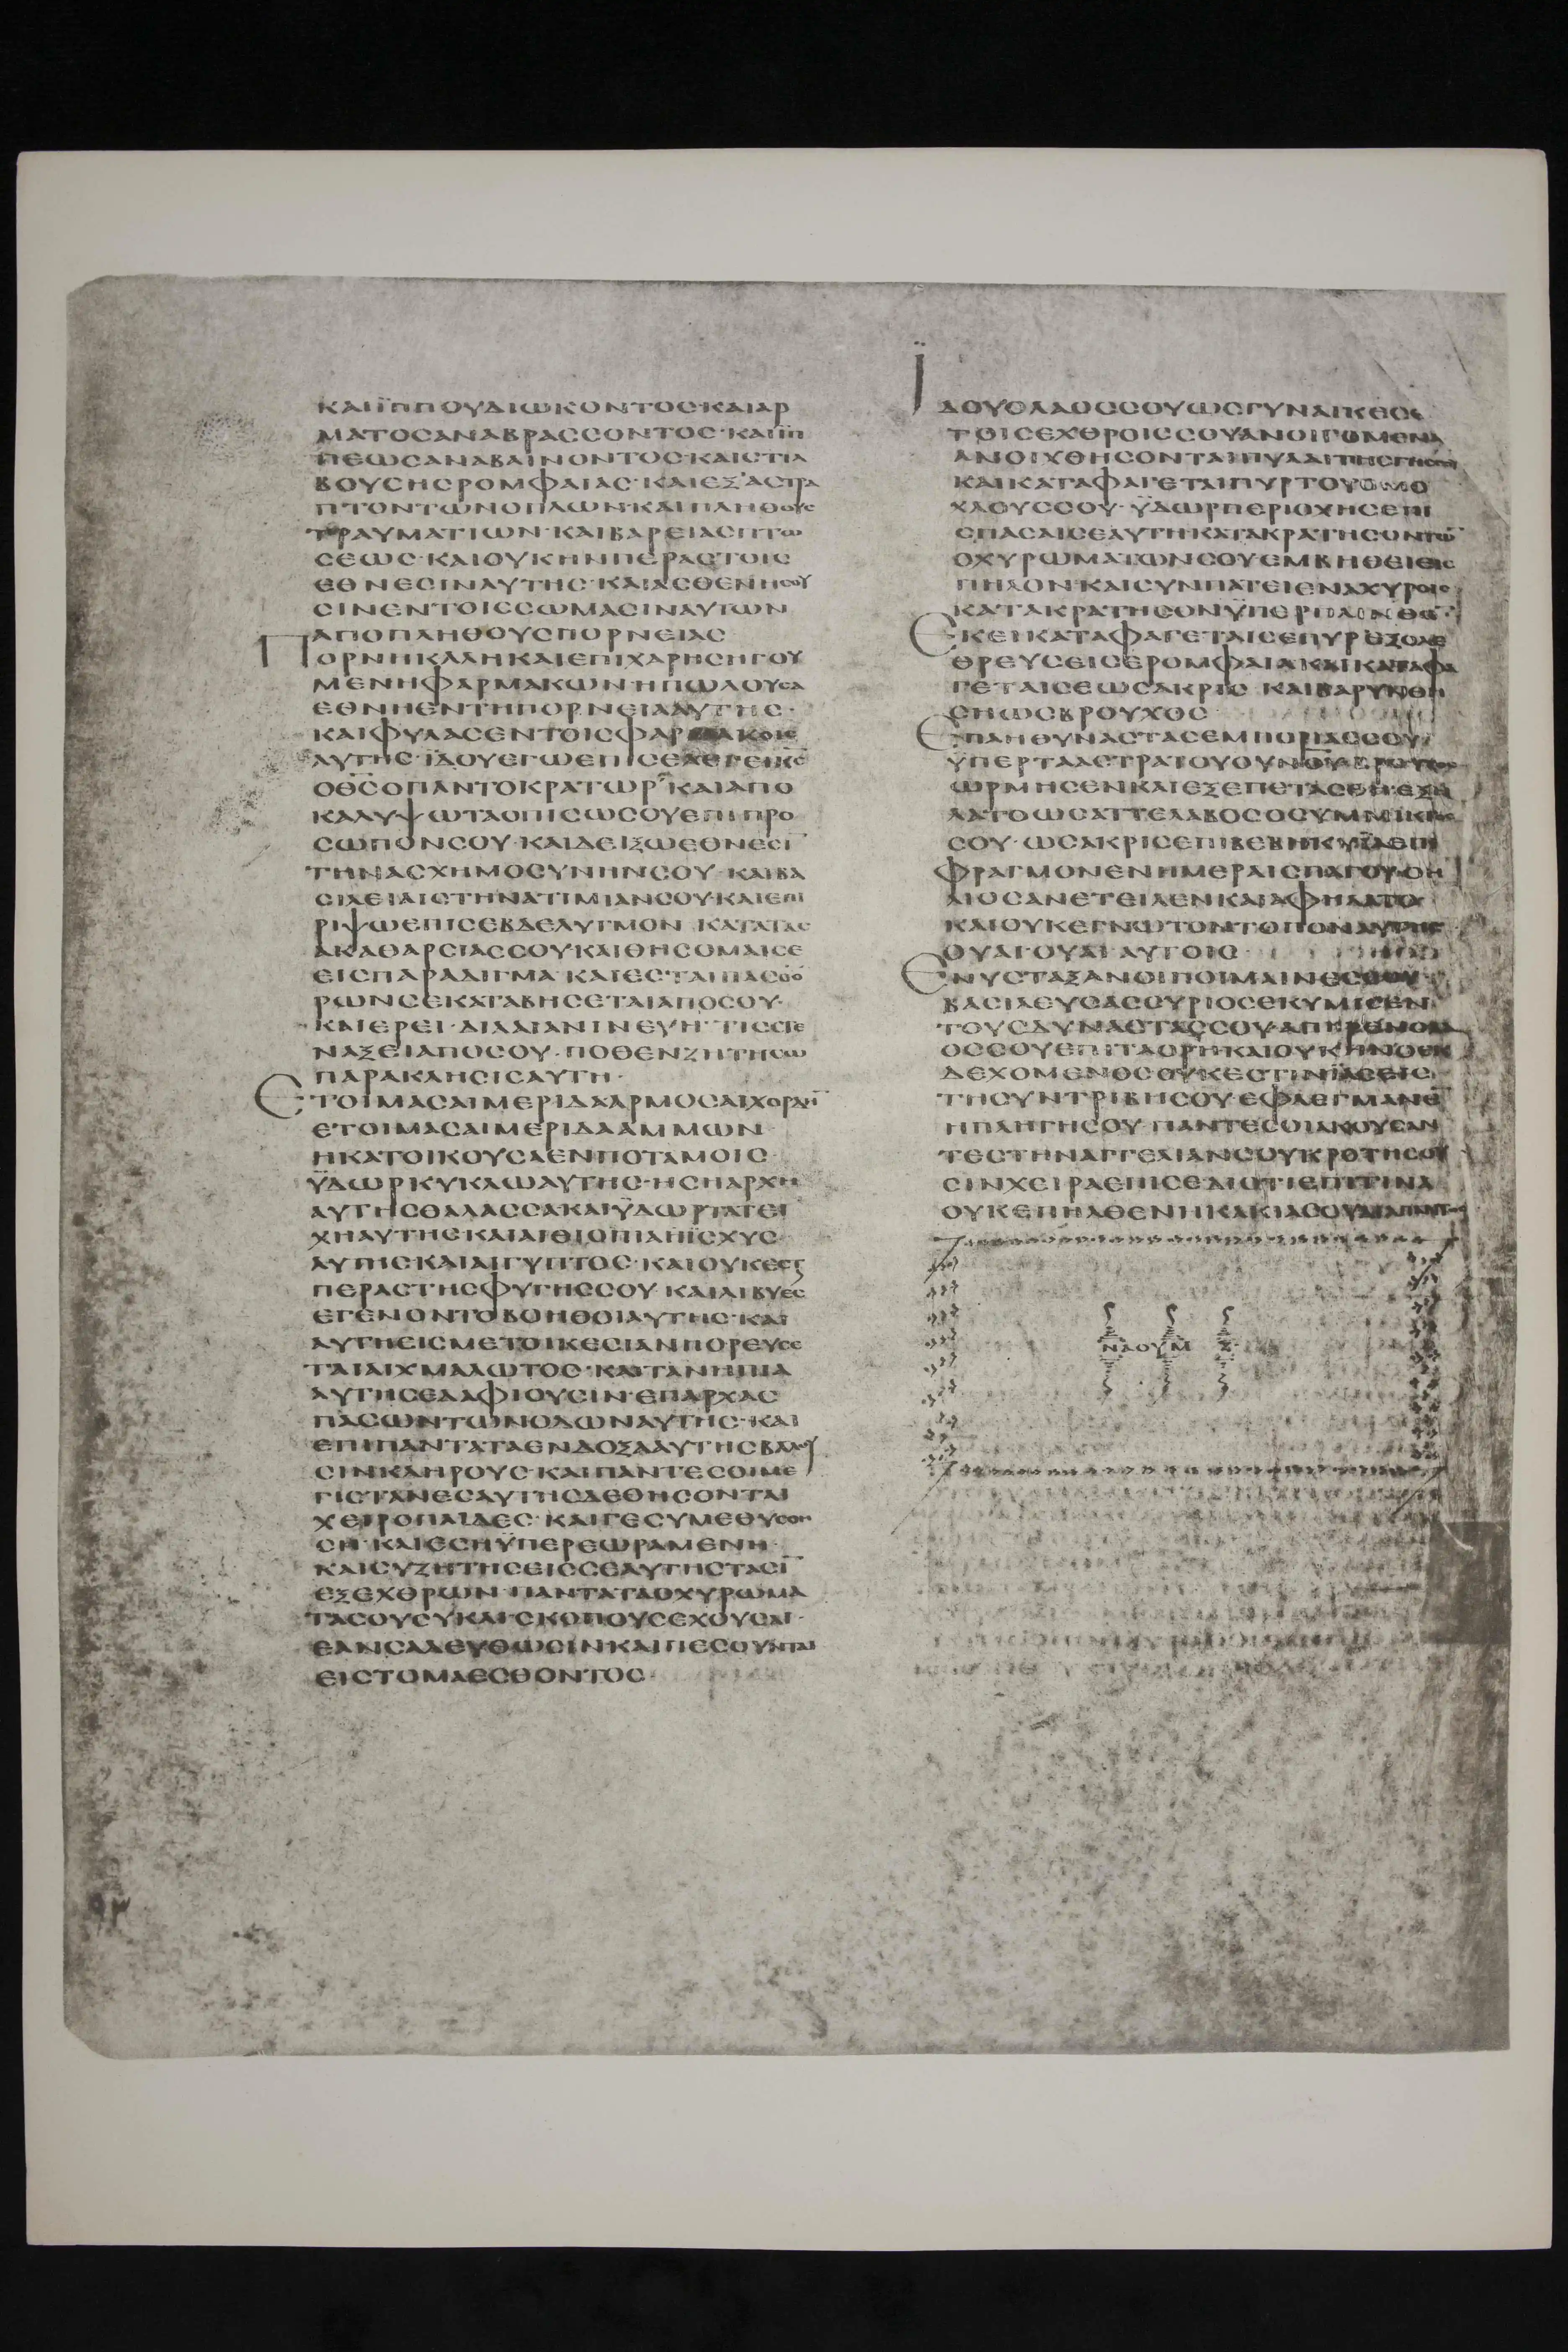 ΚΑΙΪΠΠΟΥΔΙΩΚΟΝΤΟΣ·ΚΑΙΑΡ
ΜΑΤΟΣΑΝΑΒΡΑΣΣΟΝΤΟΣ·ΚΑΙΪΠ
ΠΕΩΣΑΝΑΒΑΙΝΟΝΤΟΣ·ΚΑΙΣΤΙΛ
ΒΟΥΣΗΣΡΟΜΦΑΙΑΣ·ΚΑΙΕΞΑΣΤΡΑ
ΠΤΟΝΤΩΝΟΠΛΩΝ·ΚΑΙΠΛΗΘΟΥΣ
ΤΡΑΥΜΑΤΙΩΝ·ΚΑΙΒΑΡΕΙΑΣΠΤΩ
ΣΕΩΣ·ΚΑΙΟΥΚΗΝΠΕΡΑΣΤΟΙΣ
ΕΘΝΕΣΙΝΑΥΤΗΣ·ΚΑΙΑΣΘΕΝΗΣΟΥ
ΣΙΝΕΝΤΟΙΣΣΩΜΑΣΙΝΑΥΤΩΝ
ΑΠΟΠΛΗΘΟΥΣΠΟΡΝΕΙΑΣ
ΠΟΡΝΗΚΑΛΗΚΑΙΕΠΙΧΑΡΗΣΗΓΟΥ
ΜΕΝΗΦΑΡΜΑΚΩΝ·ΗΠΩΛΟΥΣΑ
ΕΘΝΗΕΝΤΗΠΟΡΝΕΙΑΑΥΤΗΣ·
ΚΑΙΦΥΛΑΣΕΝΤΟΙΣΦΑΡΜΑΚΟΙΣ
ΑΥΤΗΣ·ΪΔΟΥΕΓΩΕΠΙΣΕΛΕΓΕΙΚΣ
ΟΘΣΟΠΑΝΤΟΚΡΑΤΩΡ·ΚΑΙΑΠΟ
ΚΑΛΥΨΩΤΑΟΠΙΣΩΣΟΥΕΠΙΠΡΟ
ΣΩΠΟΝΣΟΥ·ΚΑΙΔΕΙΞΩΕΘΝΕΣΙ
ΤΗΝΑΣΧΗΜΟΣΥΝΗΝΣΟΥ·ΚΑΙΒΑ
ΣΙΛΕΙΑΙΣΤΗΝΑΤΙΜΙΑΝΣΟΥ·ΚΑΙΕΠΙ
ΡΙΨΩΕΠΙΣΕΒΔΕΛΥΓΜΟΝ ΚΑΤΑΤΑΣ
ΑΚΑΘΑΡΣΙΑΣΣΟΥΚΑΙΘΗΣΟΜΑΙΣΕ
ΕΙΣΠΑΡΑΔΙΓΜΑ·ΚΑΙΕΣΤΑΙΠΑΣΟΟ
ΡΩΝΣΕΚΑΤΑΒΗΣΕΤΑΙΑΠΟΣΟΥ·
ΚΑΙΕΡΕΙ·ΔΙΛΑΙΑΝΙΝΕΥΗ·ΤΙΣΣΤΕ
ΝΑΞΕΙΑΠΟΣΟΥ·ΠΟΘΕΝΖΗΤΗΣΩ
ΠΑΡΑΚΛΗΣΙΣΑΥΤΗ·
ΕΤΟΙΜΑΣΑΙΜΕΡΙΔΑΑΡΜΟΣΑΙΧΟΡΔΗ
ΕΤΟΙΜΑΣΑΙΜΕΡΙΔΑΑΜΜΩΝ
ΗΚΑΤΟΙΚΟΥΣΑΕΝΠΟΤΑΜΟΙΣ
ΫΔΩΡΚΥΚΛΩΑΥΤΗΣ·ΗΣΗΑΡΧΗ
ΑΥΤΗΣΘΑΛΑΣΣΑΚΑΙΫΔΩΡΤΑΤΕΙ
ΧΗΑΥΤΗΣΚΑΙΑΙΘΙΟΠΙΑΗΪΣΧΥΣ
ΑΥΤΗΣΚΑΙΑΙΓΥΠΤΟΣ·ΚΑΙΟΥΚΕΣΤ
ΠΕΡΑΣΤΗΣΦΥΓΗΣΣΟΥ·ΚΑΙΛΙΒΥΕΣ
ΕΓΕΝΟΝΤΟΒΟΗΘΟΙΑΥΤΗΣ·ΚΑΙ
ΑΥΤΗΕΙΣΜΕΤΟΙΚΕΣΙΑΝΠΟΡΕΥΣΕ
ΤΑΙΑΙΧΜΑΛΩΤΟΣ·ΚΑΙΤΑΝΗΠΙΑ
ΑΥΤΗΣΕΔΑΦΙΟΥΣΙΝ·ΕΠΑΡΧΑΣ
ΠΑΣΩΝΤΩΝΟΔΩΝΑΥΤΗΣ·ΚΑΙ
ΕΠΙΠΑΝΤΑΤΑΕΝΔΟΞΑΑΥΤΗΣΒΑΛΟΥ
ΣΙΝΚΛΗΡΟΥΣ·ΚΑΙΠΑΝΤΕΣΟΙΜΕ
ΓΙΣΤΑΝΕΣΑΥΤΗΣΔΕΘΗΣΟΝΤΑΙ
ΧΕΙΡΟΠΑΙΔΕΣ·ΚΑΙΓΕΣΥΜΕΘΥΣΘΗ
ΣΗ·ΚΑΙΕΣΗΫΠΕΡΕΩΡΑΜΕΝΗ·
ΚΑΙΣΥΖΗΤΗΣΕΙΣΣΕΑΥΤΗΣΤΑΣΙ
ΕΞΕΧΘΡΩΝ·ΠΑΝΤΑΤΑΟΧΥΡΩΜΑ
ΤΑΣΟΥΣΥΚΑΙΣΚΟΠΟΥΣΕΧΟΥΣΑΙ·
ΕΑΝΣΑΛΕΥΘΩΣΙΝΚΑΙΠΕΣΟΥΝΤΑΙ
ΕΙΣΤΟΜΑΕΣΘΟΝΤΟΣ·
ΪΔΟΥΟΛΑΟΣΣΟΥΩΣΓΥΝΑΙΚΕΣ
ΤΟΙΣΕΧΘΡΟΙΣΣΟΥΑΝΟΙΓΟΜΕΝΑ
ΑΝΟΙΧΘΗΣΟΝΤΑΙΠΥΛΑΙΤΗΣΓΗΣΣΟΥ
ΚΑΙΚΑΤΑΦΑΓΕΤΑΙΠΥΡΤΟΥΣΜΟ
ΧΛΟΥΣΣΟΥ·ΫΔΩΡΠΕΡΙΟΧΗΣΕΠΙ
ΣΠΑΣΑΙΣΕΑΥΤΗΚΑΤΑΚΡΑΤΗΣΟΝΤΩ
ΟΧΥΡΩΜΑΤΩΝΣΟΥΕΜΒΗΘΕΙΕΙΣ
ΠΗΛΟΝ·ΚΑΙΣΥΝΠΑΤΕΙΕΝΑΧΥΡΟΙΣ
ΚΑΤΑΚΡΑΤΗΣΟΝΫΠΕΡΠΛΙΝΘΟ
ΕΚΕΙΚΑΤΑΦΑΓΕΤΑΙΣΕΠΥΡΕΞΟΛΕ
ΘΡΕΥΣΕΙΣΕΡΟΜΦΑΙΑΚΑΙΚΑΤΑΦΑ
ΓΕΤΑΙΣΕΩΣΑΚΡΙΣ ΚΑΙΒΑΡΥΝΘΗ
ΣΗΩΣΒΡΟΥΧΟΣ
ΕΠΛΗΘΥΝΑΣΤΑΣΕΜΠΟΡΙΑΣΣΟΥ
ΫΠΕΡΤΑΑΣΤΡΑΤΟΥΟΥΝΟΥΒΡΟΥΧΟΣ
ΩΡΜΗΣΕΝΚΑΙΕΞΕΠΕΤΑΣΘΗ·ΕΞΗ
ΛΑΤΟΩΣΑΤΤΕΛΑΒΟΣΟΣΥΜΜΙΚΤΟΣ
ΣΟΥ·ΩΣΑΚΡΙΣΕΠΙΒΕΒΗΚΥΙΑΕΠΙ
ΦΡΑΓΜΟΝΕΝΗΜΕΡΑΙΣΠΑΓΟΥ·ΟΗ
ΛΙΟΣΑΝΕΤΕΙΛΕΝΚΑΙΑΦΗΛΑΤΟ
ΚΑΙΟΥΚΕΓΝΩΤΟΝΤΟΠΟΝΑΥΤΗΣ
ΟΥΑΙΟΥΑΙ ΑΥΤΟΙΣ
ΕΝΥΣΤΑΞΑΝΟΙΠΟΙΜΑΙΝΕΣΣΟΥ·
ΒΑΣΙΛΕΥΣΑΣΣΥΡΙΟΣΕΚΥΜΙΣΕΝ
ΤΟΥΣΔΥΝΑΣΤΑΣΣΟΥ·ΑΠΗΡΕΝΟΛΑ
ΟΣΣΟΥΕΠΙΤΑΟΡΗΚΑΙΟΥΚΗΝΟΕΚ
ΔΕΧΟΜΕΝΟΣΟΥΚΕΣΤΙΝΪΑΣΕΙΣ
ΤΗΣΥΝΤΡΙΒΗΣΟΥ·ΕΦΛΕΓΜΑΝΕ
ΗΠΛΗΓΗΣΟΥ·ΠΑΝΤΕΣΟΙΑΚΟΥΣΑΝ
ΤΕΣΤΗΝΑΓΓΕΛΙΑΝΣΟΥΚΡΟΤΗΣΟΥ
ΣΙΝΧΕΙΡΑΣΕΠΙΣΕ·ΔΙΟΤΙΕΠΙΤΙΝΑ
ΟΥΚΕΠΗΛΘΕΝΗΚΑΚΙΑΣΟΥΔΙΑΠΑΝΤ
ΝΑΟΥΜ Ζ